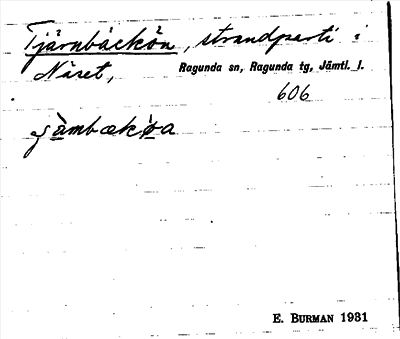 Tjärnbäckön, strandparti i
Näset, Ragunda sn, Ragunda tg, Jämtl. l.
606
E. BURMAN 1931